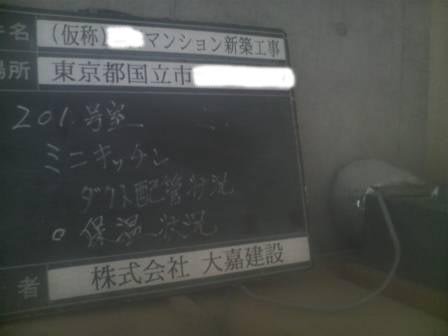 件名 (仮称) マンション新築工事
場所 東京都国立市
201.号室
ミニキッチン
ダクト配管状況
○ 保温状況
者 株式会社 大嘉建設